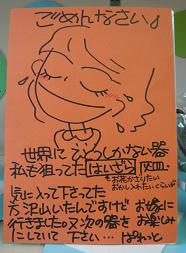 ごめんなさい♪
世界にひとつしかない器
私も狙ってた はいざら 灰皿
もお花かざりたい
おかし入れたいくらいが
気に入って下さってた
方沢山いたんですけど お嫁に
行きました。又次の器を お楽しみ
にしていて 下さい… ぱれっと